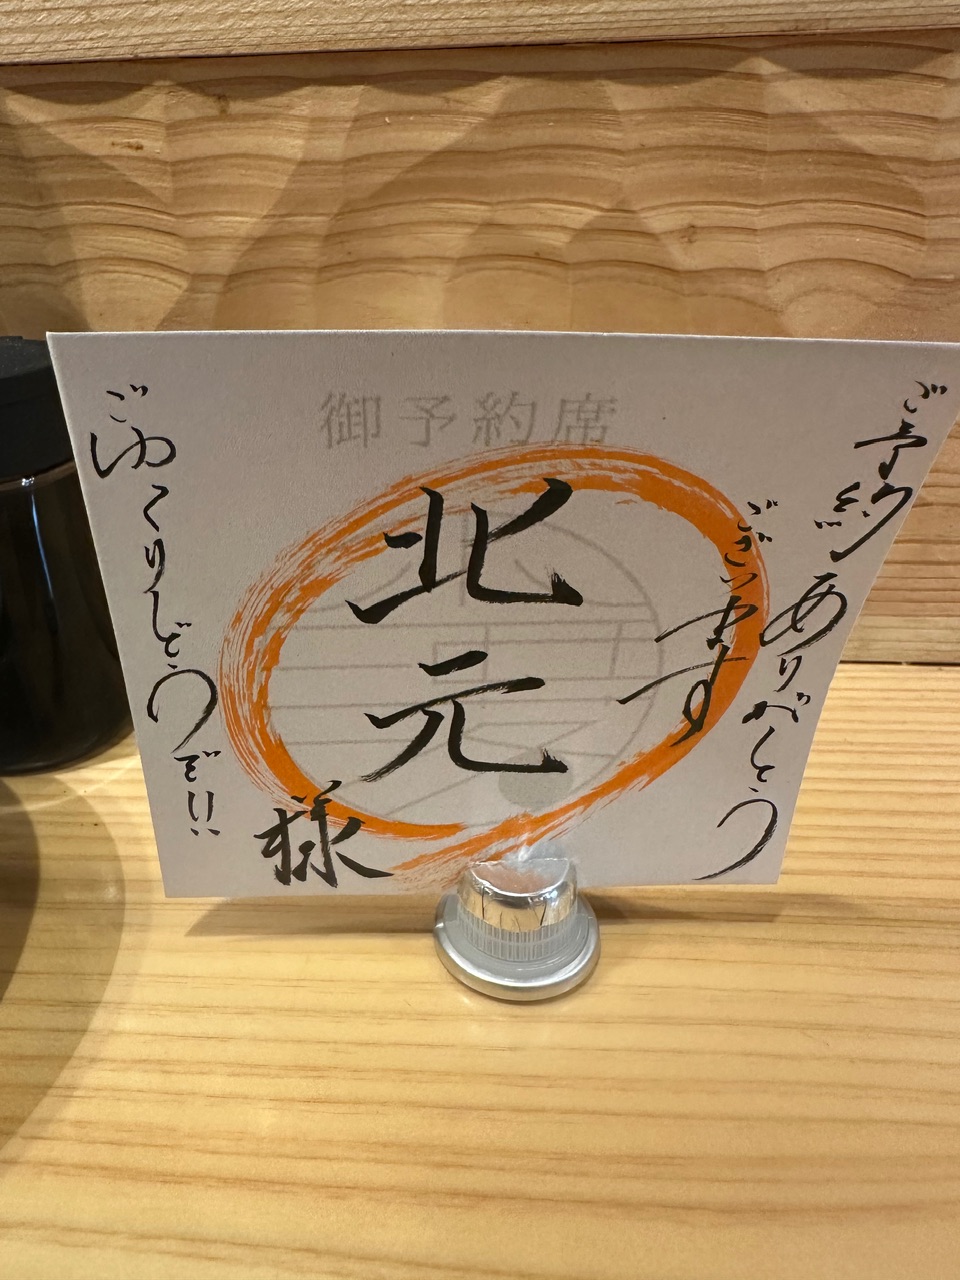 御予約席
ご予約ありがとう
ございます
北元
様
ごゆくりどうぞ!!